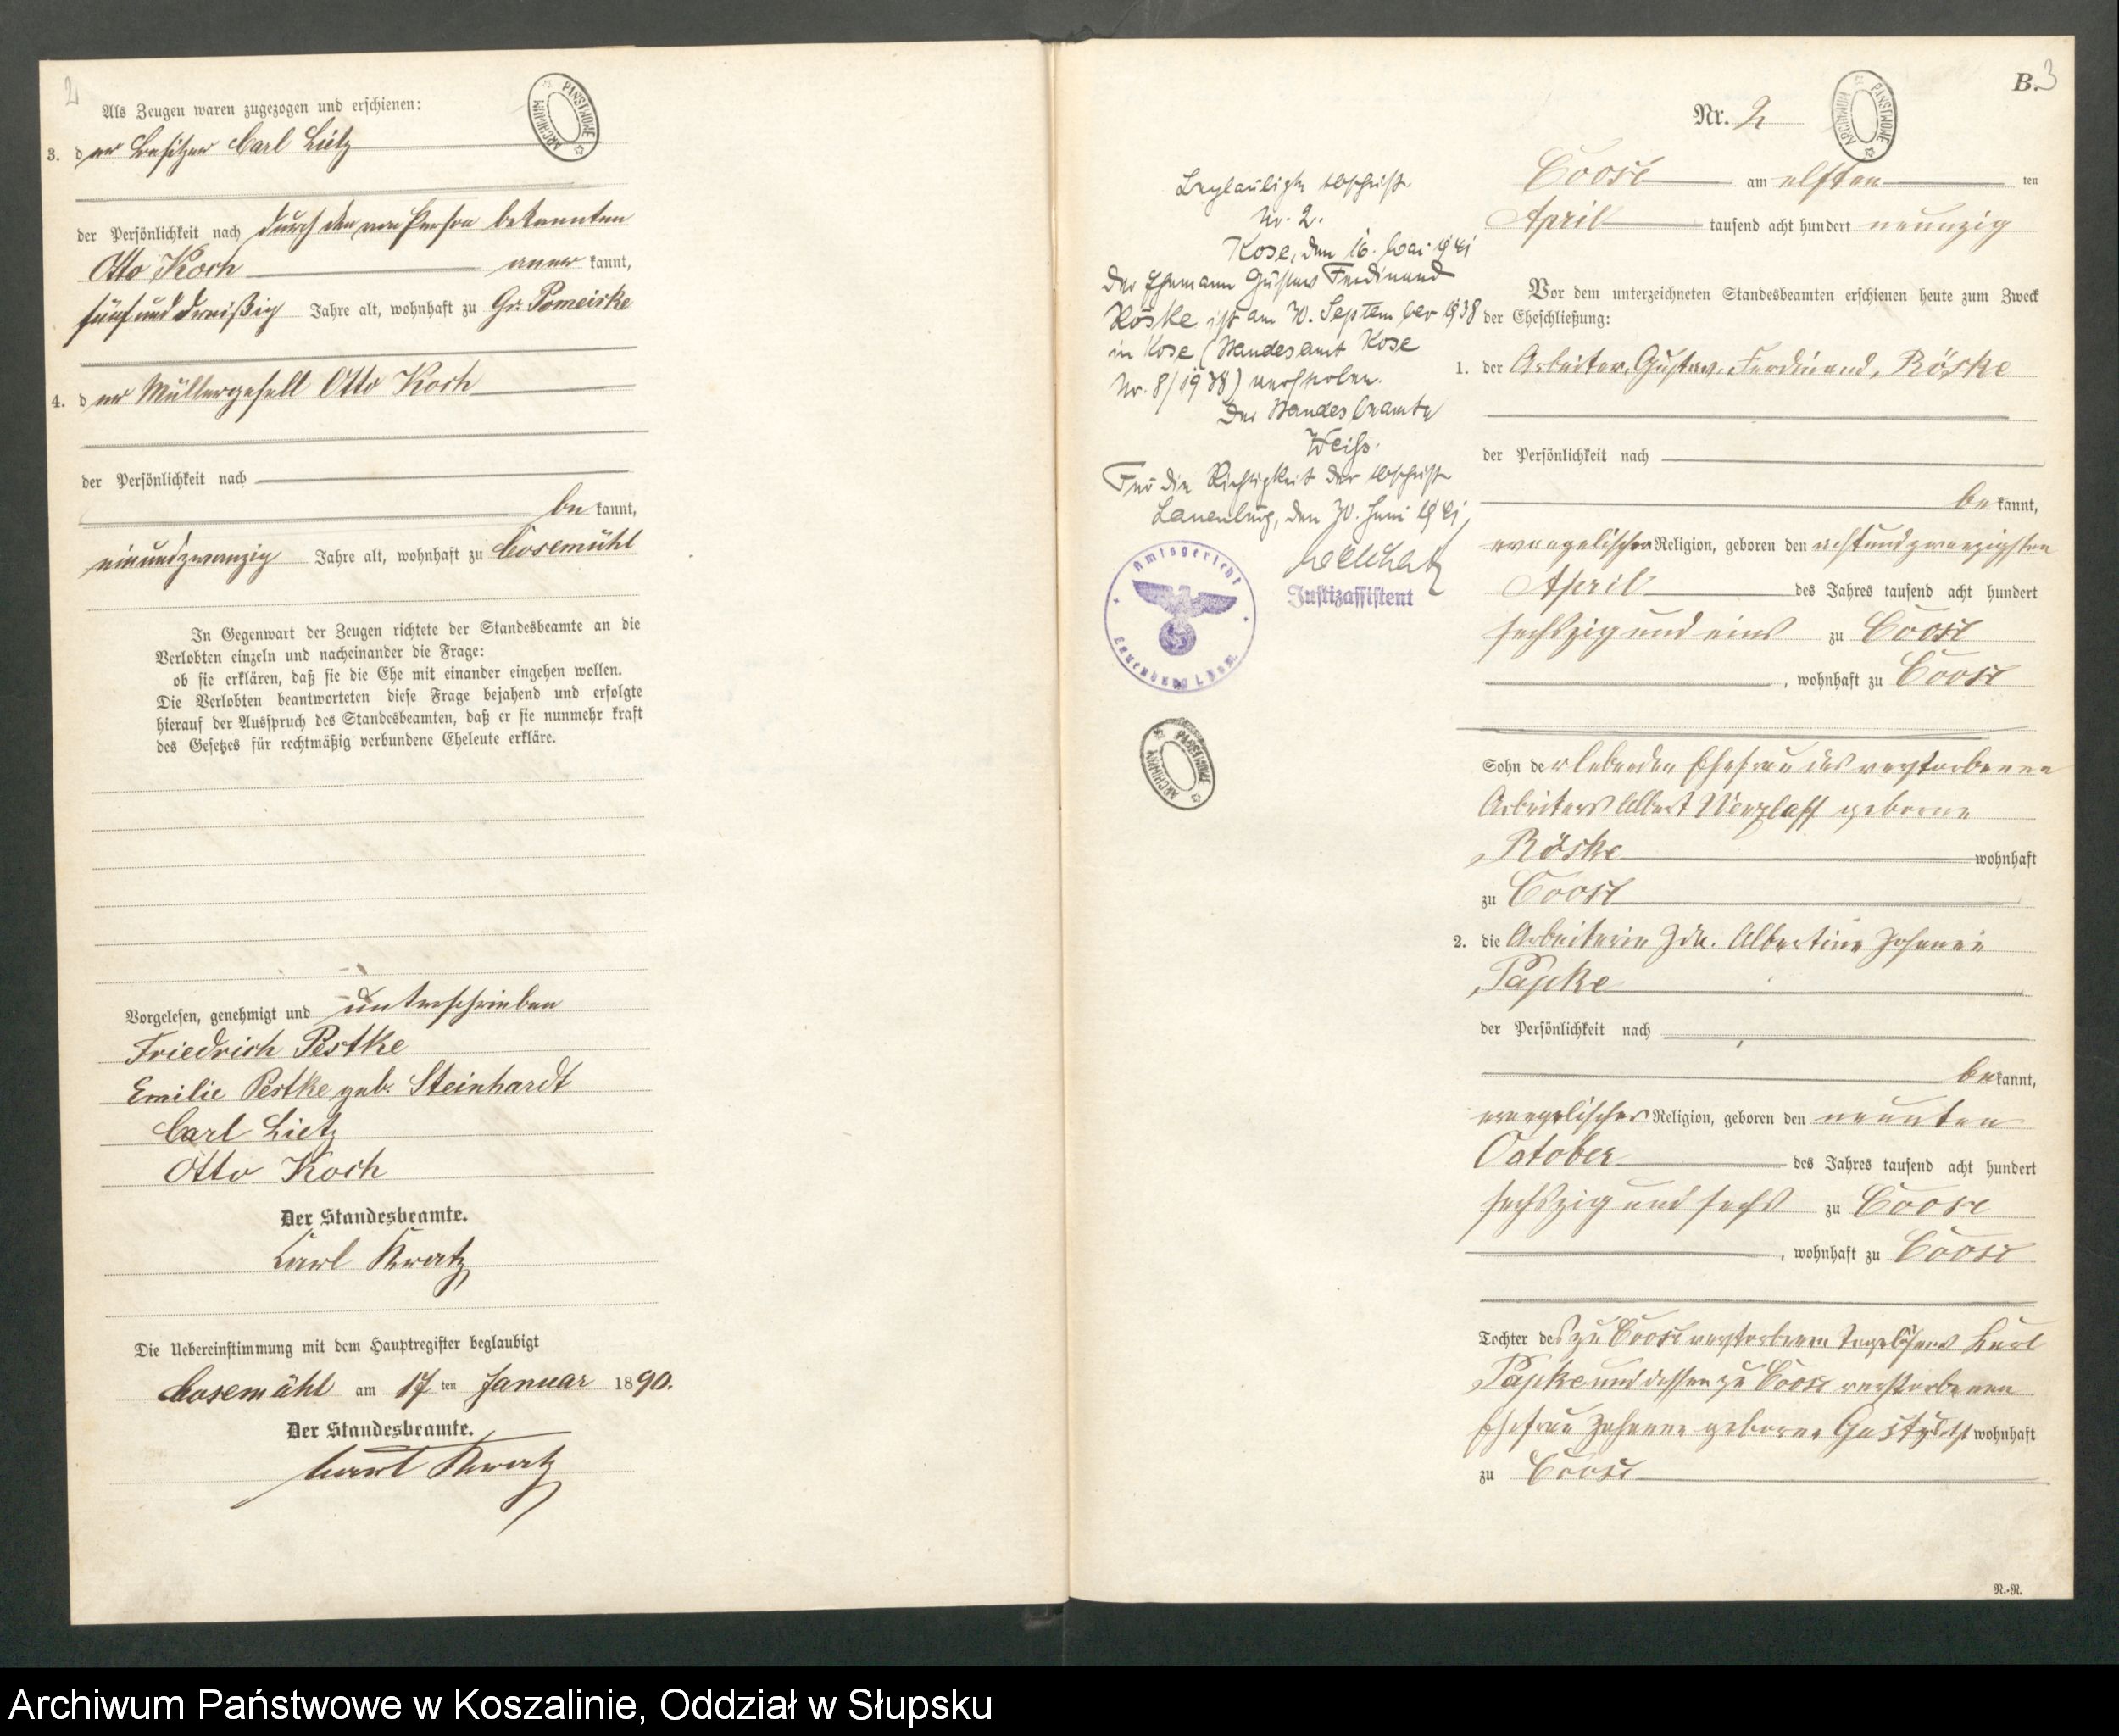 2
Als Zeugen waren zugezogen und erschienen:
3. der Besitzer Carl Lietz
der Persönlichkeit nach durch den von Person bekannten
Otto Koch anerkannt,
fünfunddreißig Jahre alt, wohnhaft zu Gr. Pomeiske
4. der Müllergesell Otto Koch
der Persönlichkeit nach
bekannt,
einundzwanzig Jahre alt, wohnhaft zu Cosemühl
In Gegenwart der Zeugen richtete der Standesbeamte an die
Verlobten einzeln und nacheinander die Frage:
ob sie erklären, daß sie die Ehe mit einander eingehen wollen.
Die Verlobten beantworteten diese Frage bejahend und erfolgte
hierauf der Ausspruch des Standesbeamten, daß er sie nunmehr kraft
des Gesetzes für rechtmäßig verbundene Eheleute erkläre.
Vorgelesen, genehmigt und unterschrieben
Friedrich Pestke
Emilie Pestke geb. Steinhardt
Carl Lietz
Otto Koch
Der Standesbeamte.
Karl Kratz
Die Uebereinstimmung mit dem Hauptregister beglaubigt
Cosemühl am 17ten Januar 1890.
Der Standesbeamte.
Kratz
ARCHIWUM PAŃSTWOWE
B. 3
Nr. 2
ARCHIWUM PAŃSTWOWE
Coose am elften ten
April tausend acht hundert neunzig
Vor dem unterzeichneten Standesbeamten erschienen heute zum Zweck
der Eheschließung:
1. der Arbeiter, Gustav Ferdinand, Röske
der Persönlichkeit nach
bekannt,
evangelischer Religion, geboren den achtundzwanzigsten
April des Jahres tausend acht hundert
sechszig und eins zu Coose
, wohnhaft zu Coose
Sohn der lebenden Ehefrau des verstorbenen
Arbeiters Albert geborne
Röske wohnhaft
zu Coose
2. die Arbeiterin Ida Albertine Johanne
Papke
der Persönlichkeit nach
bekannt,
evangelischer Religion, geboren den neunten
October des Jahres tausend acht hundert
sechszig und sechs zu Coose
, wohnhaft zu Coose
Tochter des zu Coose verstorbenen Tagelöhners
Papke und dessen zu Coose verstorbenen
Ehefrau Johanne geborne wohnhaft
zu Coose
R.-R.
Beglaubigte Abschrift.
Nr. 2.
Kose, den 16. Mai 1941
Der Ehemann Gustav Ferdinand
Röske ist am 30. September 1938
in Kose (Standesamt Kose
Nr. 8/1938) verstorben.
Der Standesbeamte
Weiß.
Für die Richtigkeit der Abschrift
Lauenburg, den 30. Juni 1941
Justizassistent
Amtsgericht
Lauenburg i. Pom.
ARCHIWUM PAŃSTWOWE
Archiwum Państwowe w Koszalinie, Oddział w Słupsku